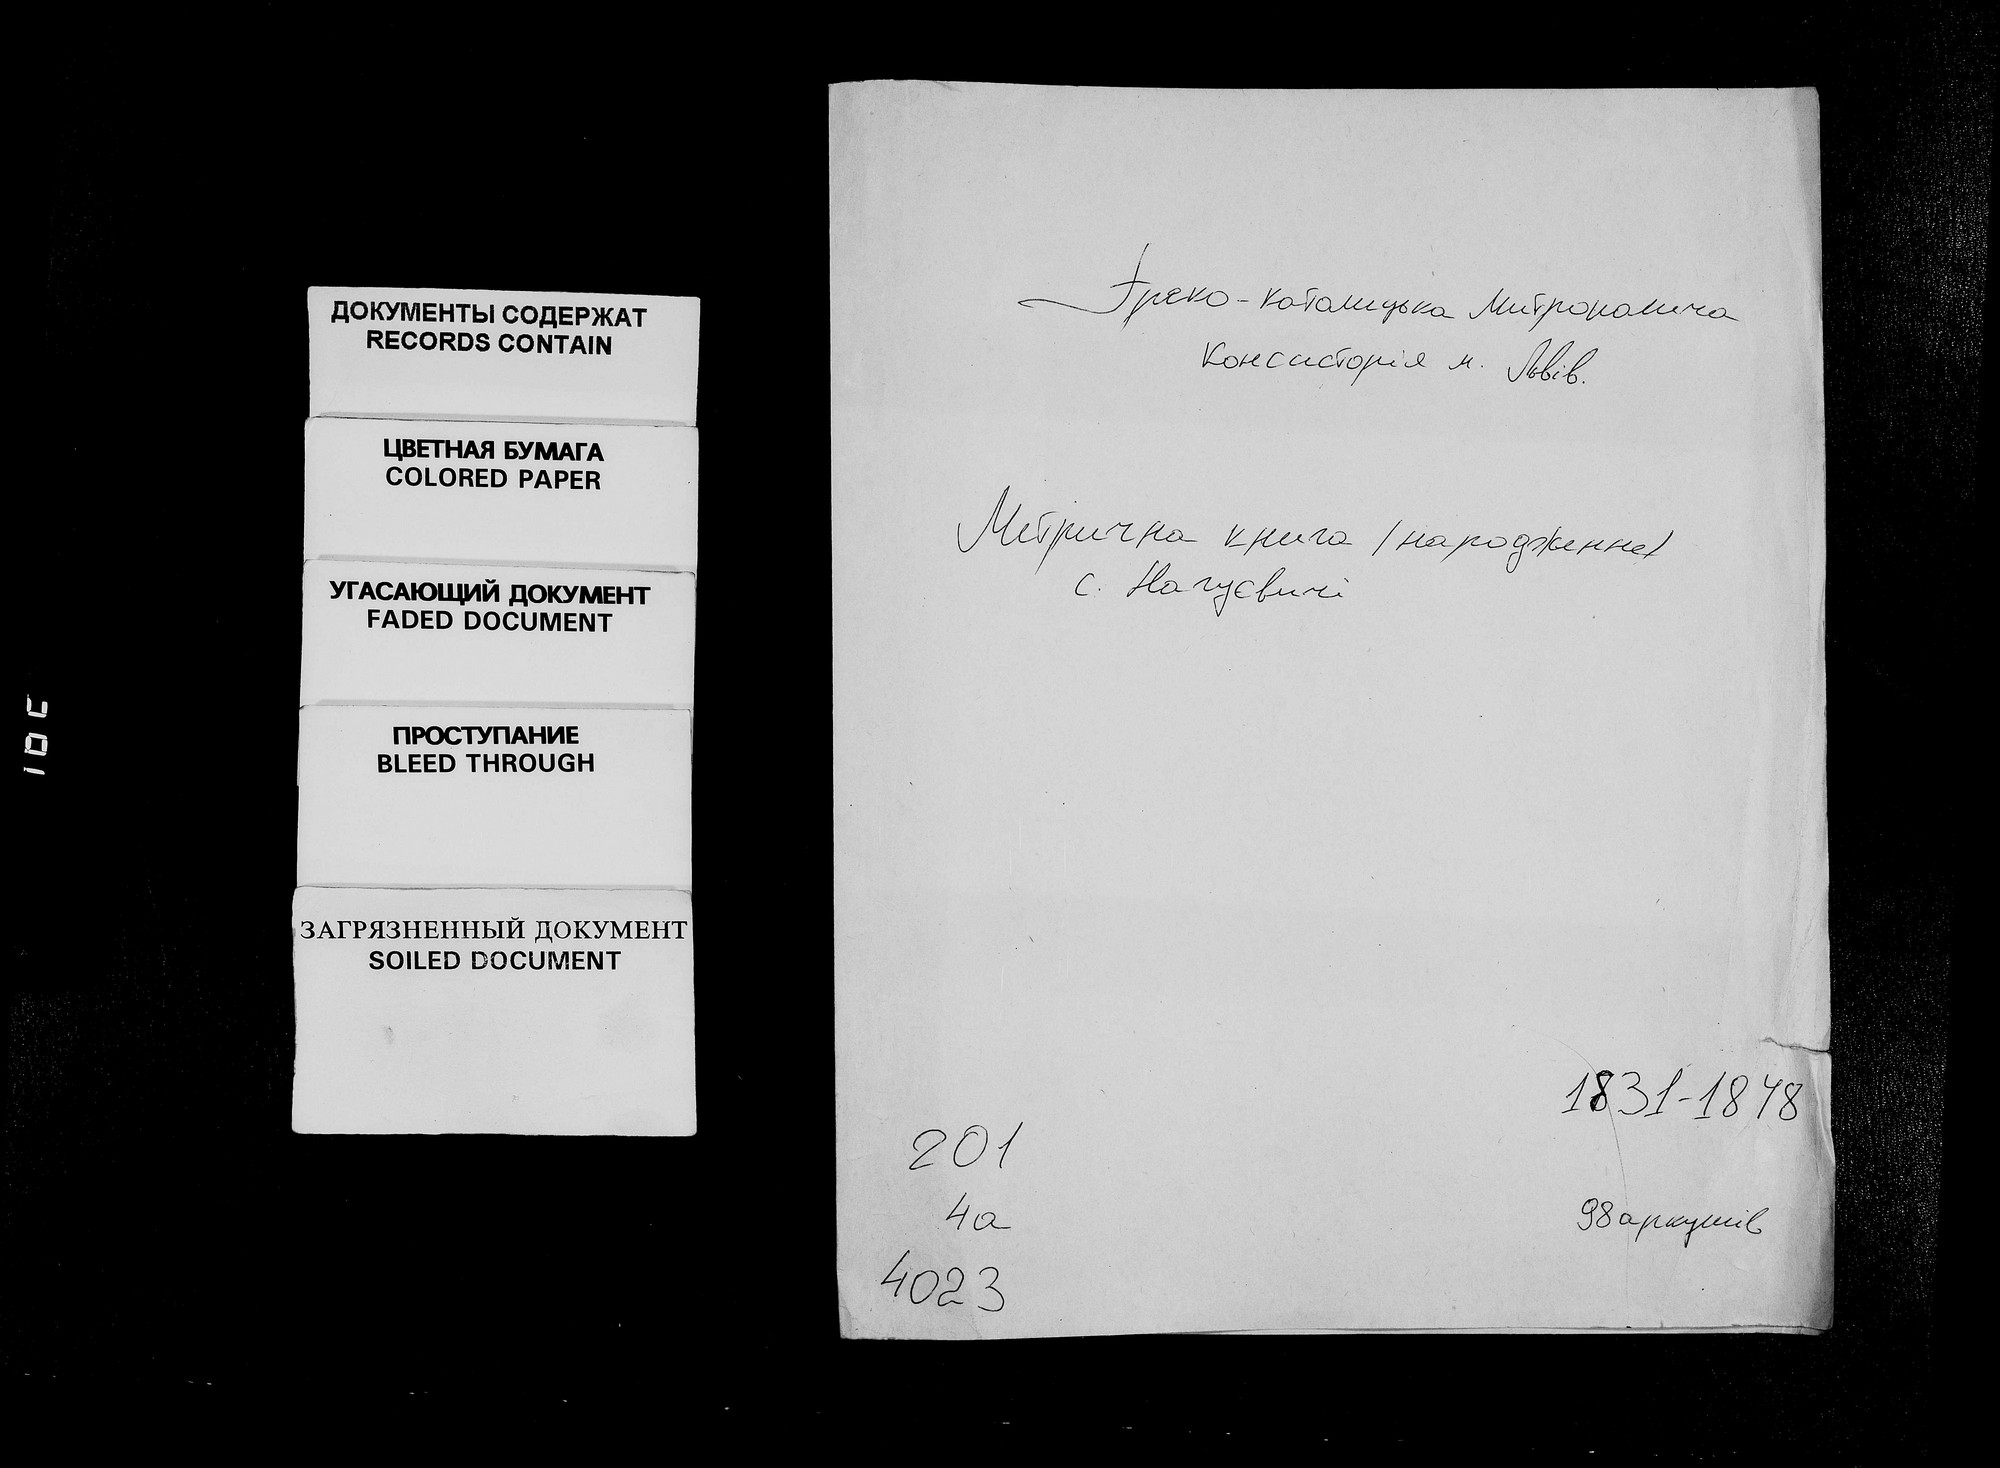 ДОКУМЕНТЫ СОДЕРЖАТ
RECORDS CONTAIN
ЦВЕТНАЯ БУМАГА
COLORED PAPER
УГАСАЮЩИЙ ДОКУМЕНТ
FADED DOCUMENT
ПРОСТУПАНИЕ
BLEED THROUGH
ЗАГРЯЗНЕННЫЙ ДОКУМЕНТ
SOILED DOCUMENT
Греко-католицька Митрополича
Консисторія м. Львів.
Метрична книга /народження/
с. Нагуєвичі
1831-1848
201
4а
98 аркушів
4023